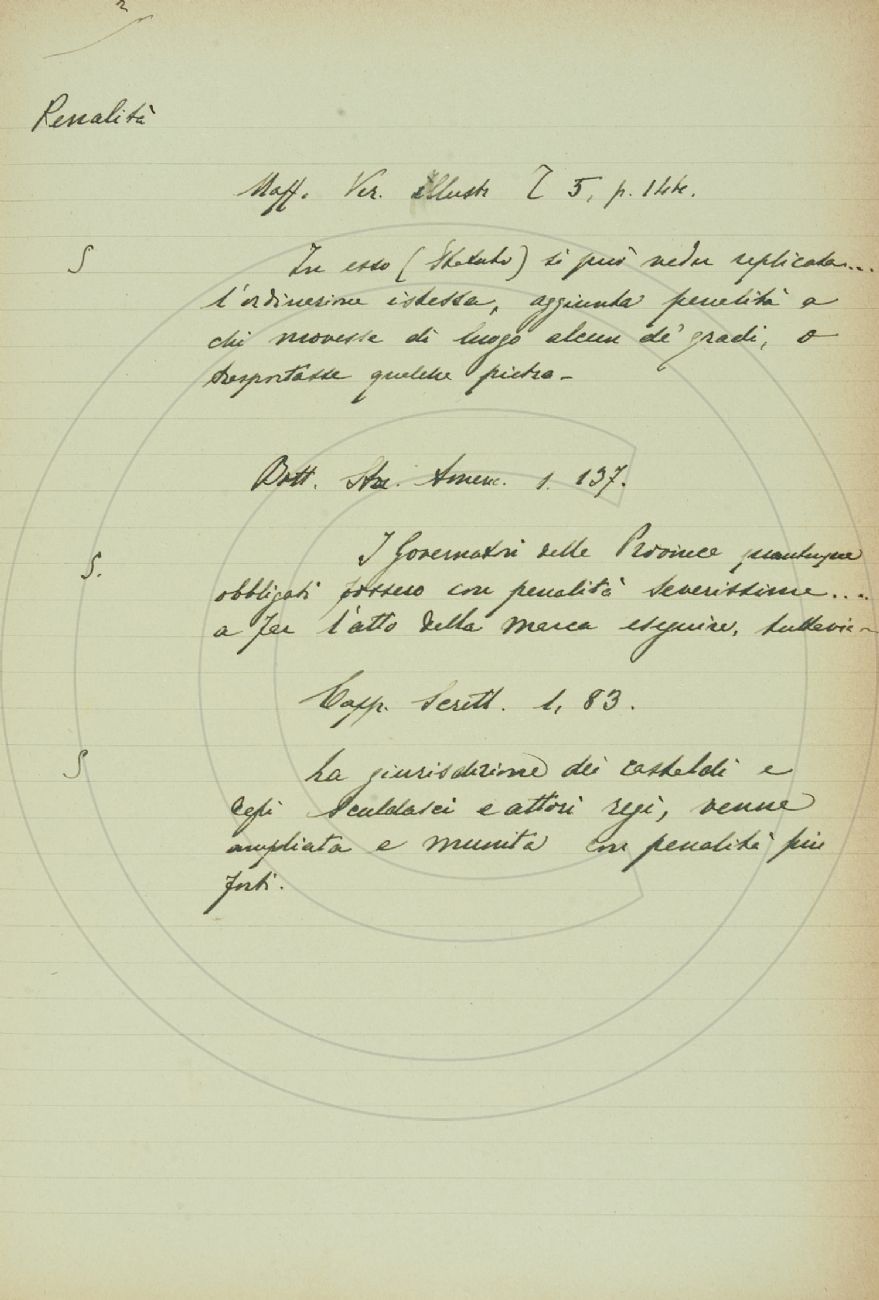 2
Penalità
Maff. Ver. illustr. T 5, p. 144.
S In esso (Statuto) si può veder replicata...
l'ordinazione istessa, aggiunta penalità a
chi movesse di luogo alcun de' gradi, o
trasportasse qualche pietra -
Bott. Stor. Amer. 1. 137.
S. I Governatori delle Province quantunque
obbligati fossero con penalità severissime....
a far l'atto della marca eseguire, tuttavia -
Capp. Scritt. 1, 83.
S La giurisdizione dei castaldi e
capi sculdasci e attori regi, venne
ampliata e munita con penalità più
forti.